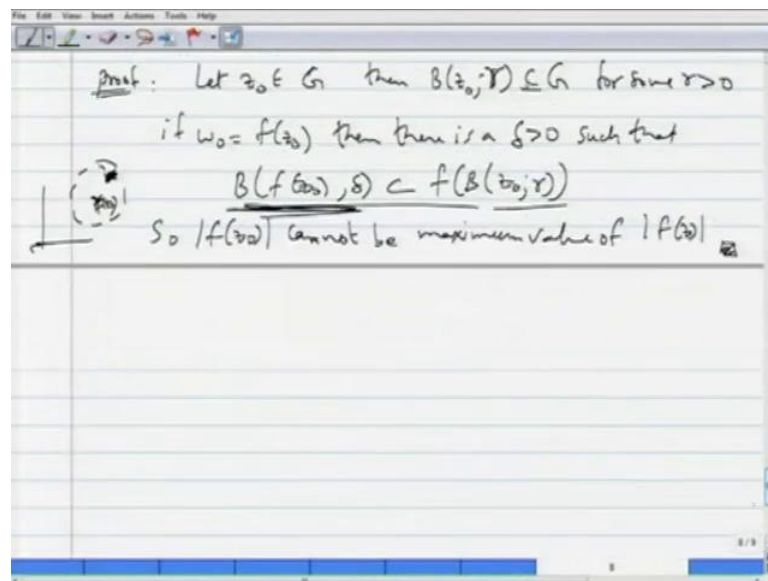 File Edit View Insert Actions Tools Help
Proof : Let z₀ ∈ G then B(z₀; r) ⊆ G for some r>0
if w₀ = f(z₀) then there is a δ>0 such that
B(f(z₀), δ) ⊂ f(B(z₀; r))
So |f(z₀)| cannot be maximum value of |f(z)|